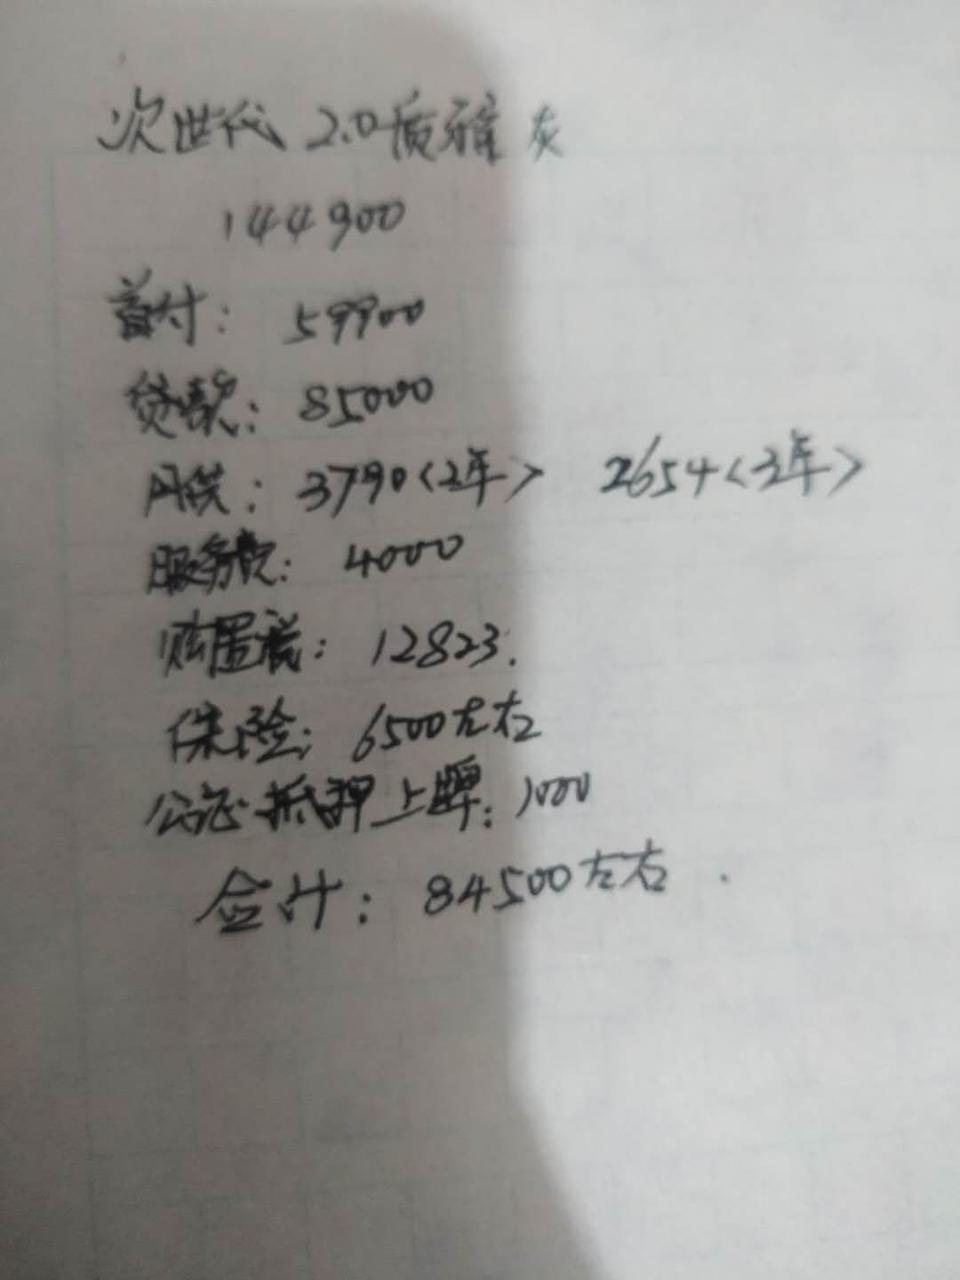 次世代 2.0质雅灰
144900
首付：59900
贷款：85000
月供：3790<2年> 2654<3年>
服务费：4000
购置税：12823.
保险：6500左右
公证抵押上牌：1000
合计：84500左右.